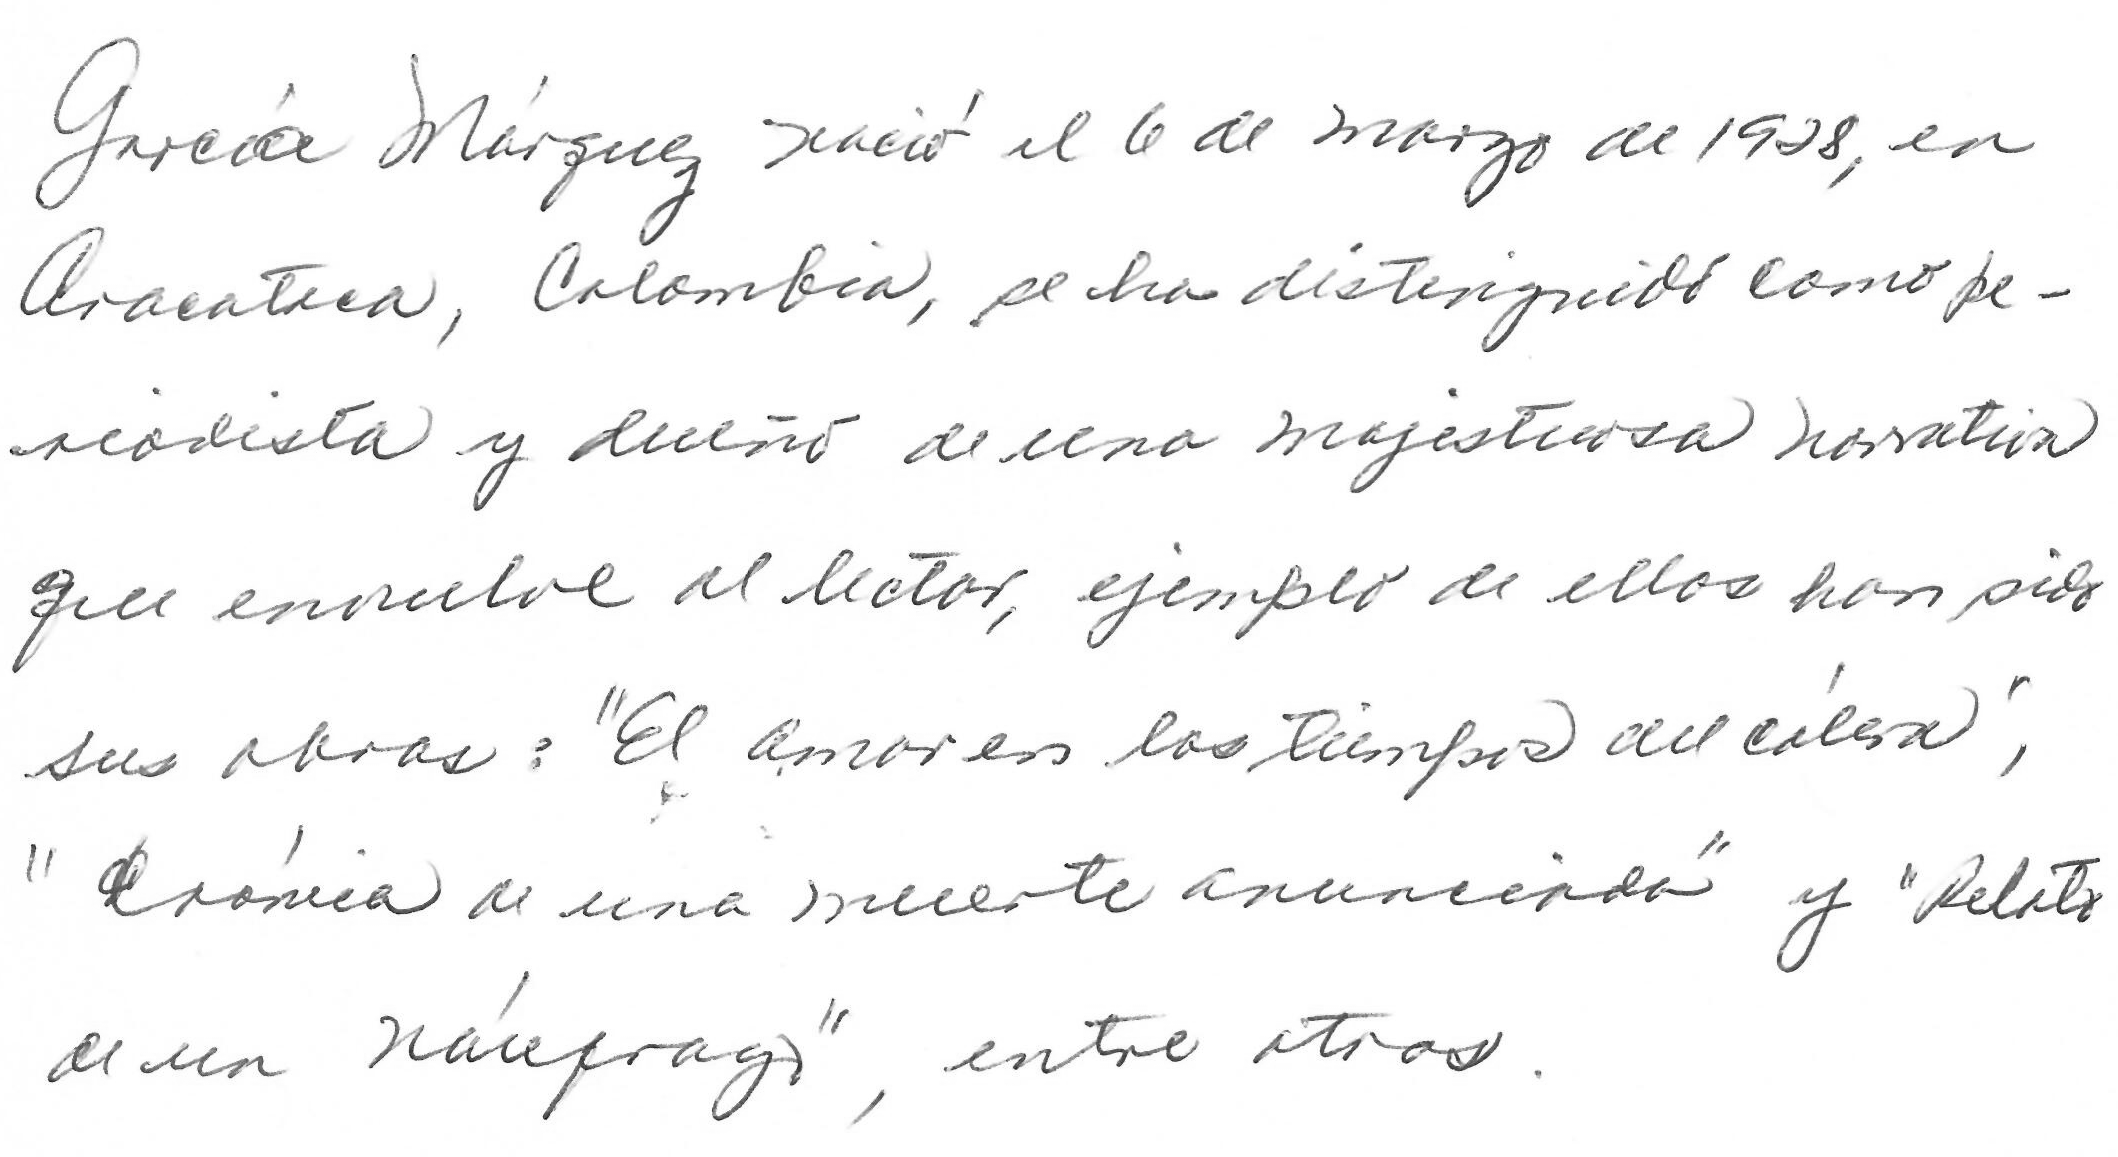 García Márquez nació el 6 de marzo de 1928, en
Aracataca, Colombia, se ha distinguido como pe-
riodista y dueño de una majestuosa narrativa
que envuelve al lector, ejemplo de ellos han sido
sus obras: "El amor en los tiempos del cólera",
"Crónica de una muerte anunciada" y "Relato
de un náufrago", entre otros.